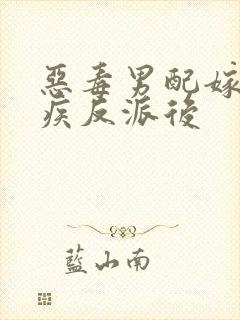 惡毒男配嫁
疾反派後
藍山南